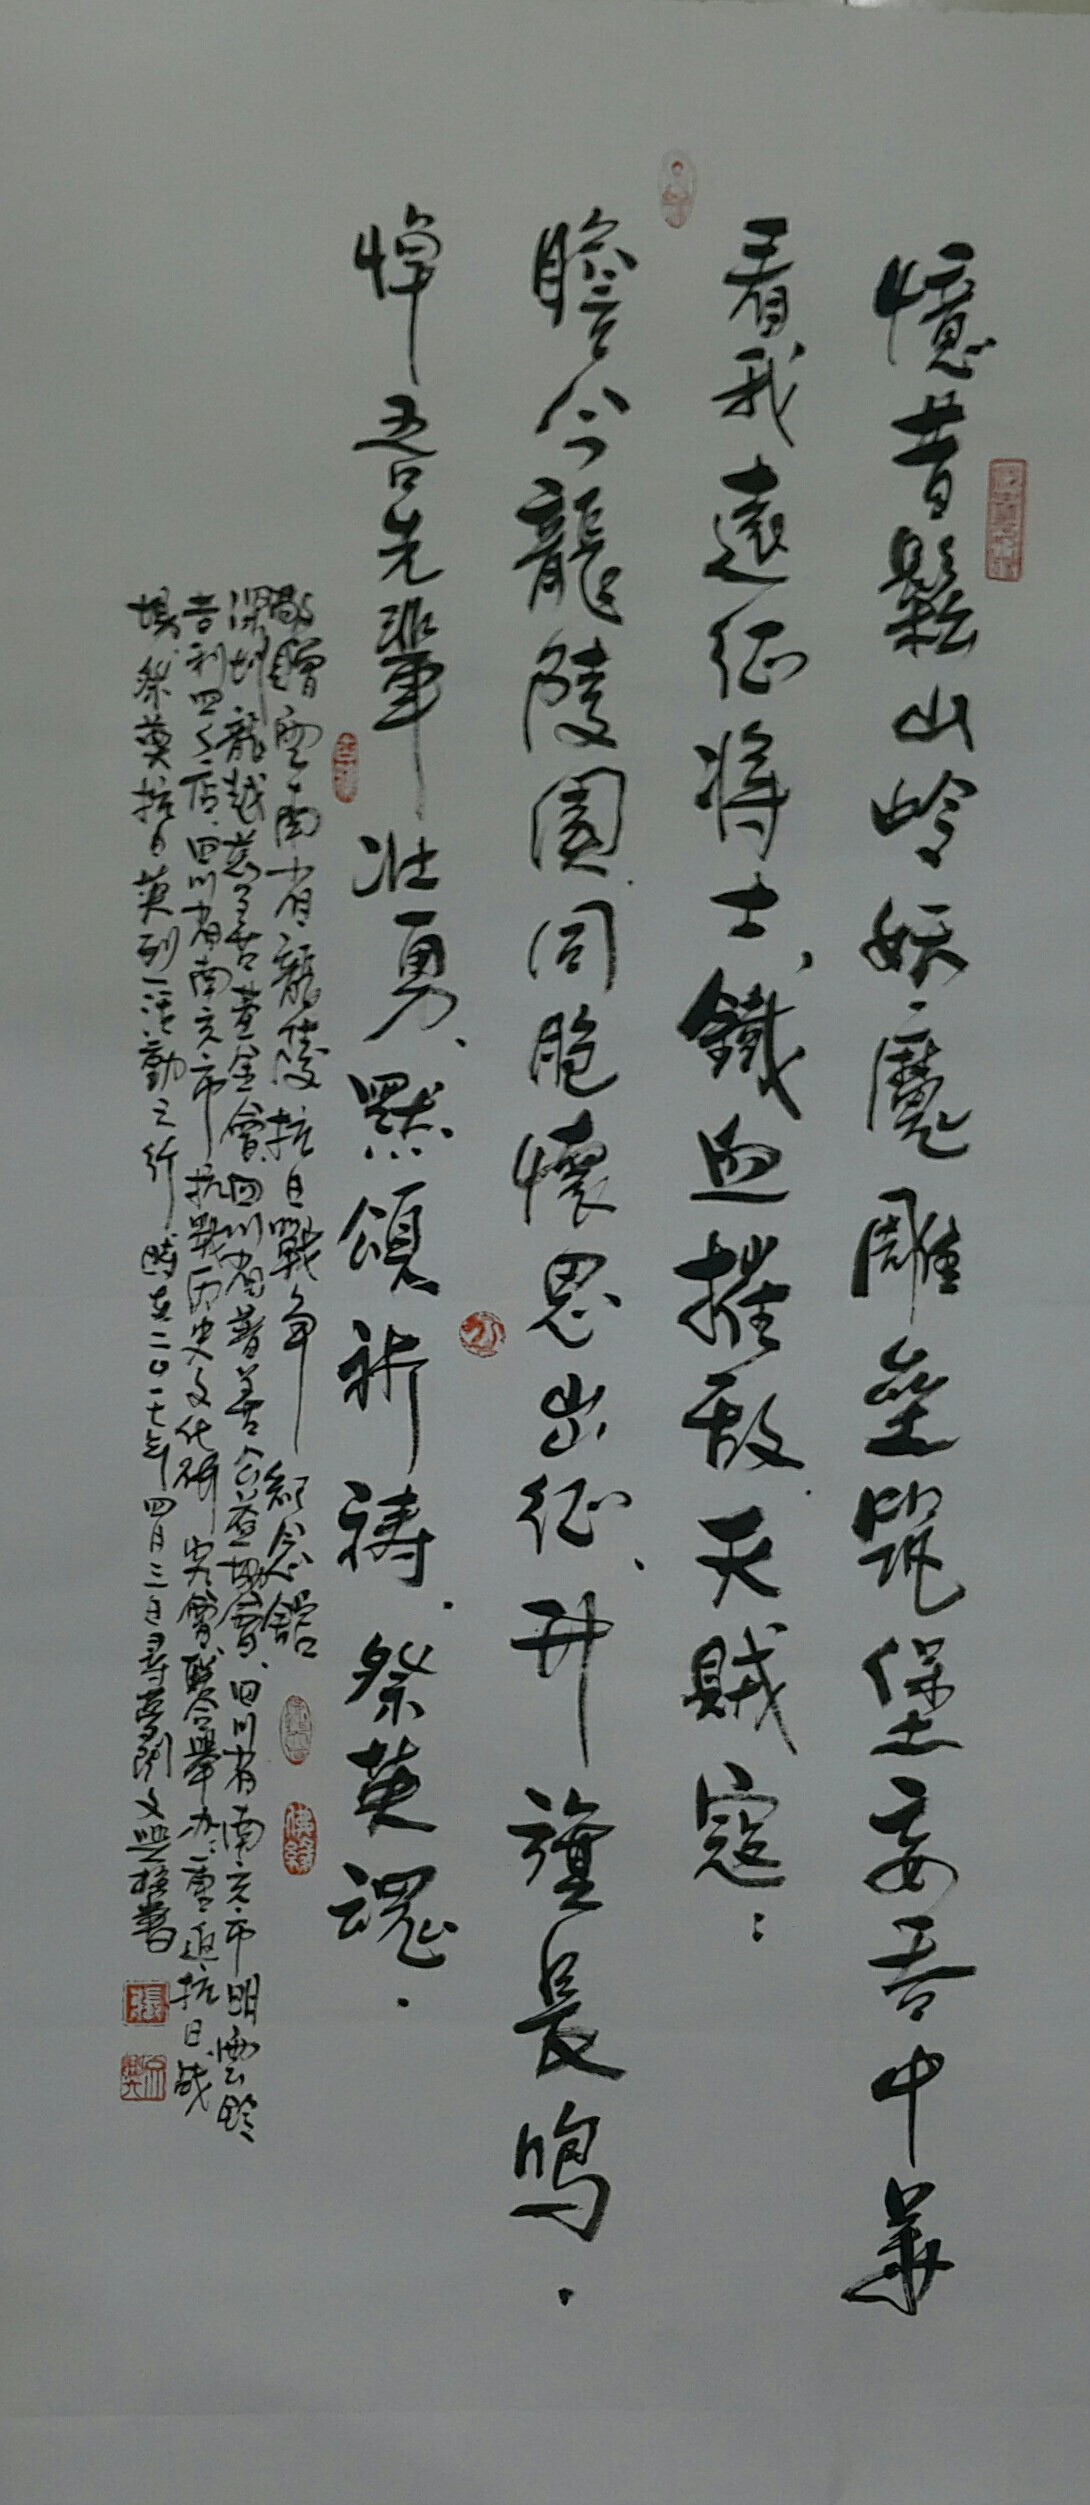 憶昔鬆山岭妖魔雕壘筑堡妄吾中華
看我遠征將士、鐵血摧敌灭賊寇：
瞻今龍陵園同胞懷思出征、升旗長鳴．
悼吾先輩壯勇、默頌祈禱．祭英魂．
敬贈雲南省龍陵抗日戰争紀念館
深圳龍越慈善基金會、四川省普善公益協會、四川省南充市明雲
吉利四S店、四川省南充市抗戰历史文化研究會联合舉办重返抗日战
場祭奠抗日英烈活動之行時在二〇一七年四月三日